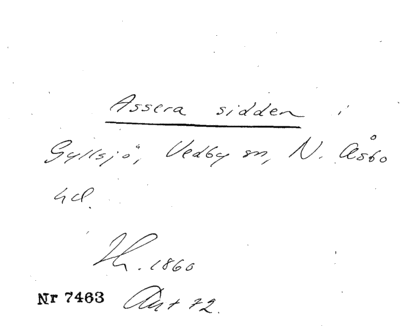 Assera sidden i
Gyllsjö, Vedby sn, N. Åsbo
hd.
Th. 1860
Nr 7463 Ant 72.